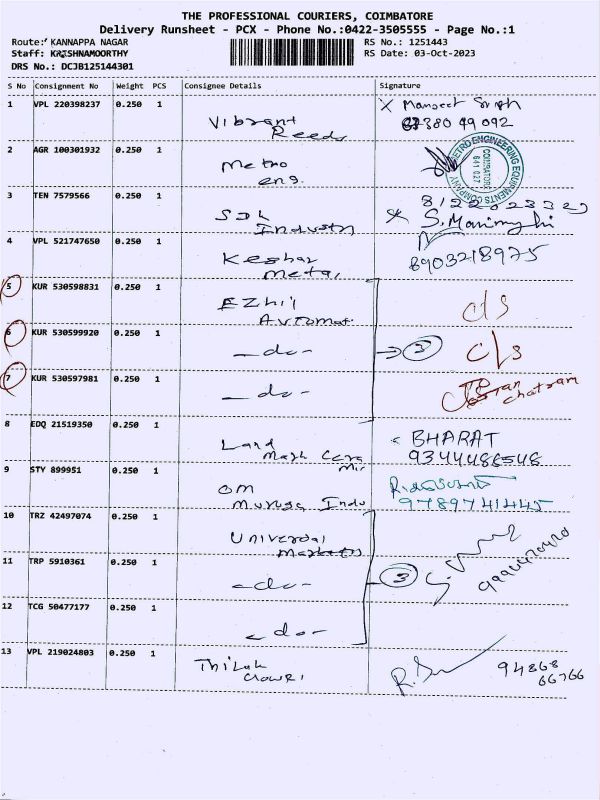 THE PROFESSIONAL COURIERS, COIMBATORE
Delivery Runsheet - PCX - Phone No.:0422-3505555 - Page No.:1
Route: KANNAPPA NAGAR RS No.: 1251443
Staff: KRISHNAMOORTHY RS Date: 03-Oct-2023
DRS No.: DCJB125144301
S No Consignment No Weight PCS Consignee Details Signature
1 VPL 220398237 0.250 1 Vibrant Reeds
2 AGR 100301932 0.250 1 Metro eng.
METRO ENGINEERING EQUIPMENTS COMPANY
COIMBATORE
641 027
3 TEN 7579566 0.250 1 Industry
4 VPL 521747650 0.250 1 Keshar metal
8903218975
5 KUR 530598831 0.250 1 Ezhil Automat. c/s
6 KUR 530599920 0.250 1 -do- 3 c/s
7 KUR 530597981 0.250 1 -do-
8 EDQ 21519350 0.250 1 Land BHARAT
9 STY 899951 0.250 1 OM Muruga Indu
9789741445
10 TRZ 42497074 0.250 1 Universal
11 TRP 5910361 0.250 1 -do- 3
12 TCG 50477177 0.250 1 -do-
13 VPL 219024803 0.250 1 Thilak
94868
66766